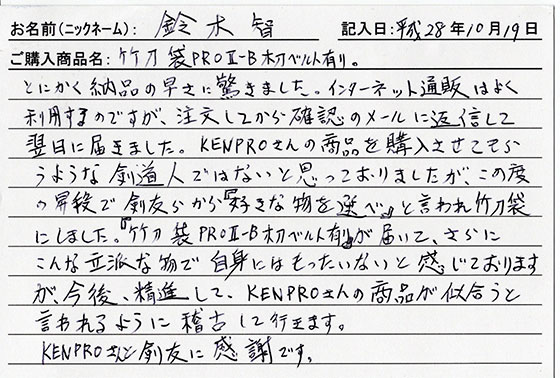 お名前(ニックネーム): 鈴木智 記入日:平成28年10月19日
ご購入商品名: 竹刀袋PROⅡ-B木刀ベルト有り。
とにかく納品の早さに驚きました。インターネット通販はよく
利用するのですが、注文してから確認のメールに返信して
翌日に届きました。KENPROさんの商品を購入させてもら
うような剣道人ではないと思っておりましたが、この度
の昇段で剣友らから『好きな物を選べ』と言われ竹刀袋
にしました。『竹刀袋PROⅡ-B木刀ベルト有』が届いて、さらに
こんな立派な物で自身にはもったいないと感じております
が、今後、精進して、KENPROさんの商品が似合うと
言われるように稽古して行きます。
KENPROさんと剣友に感謝です。